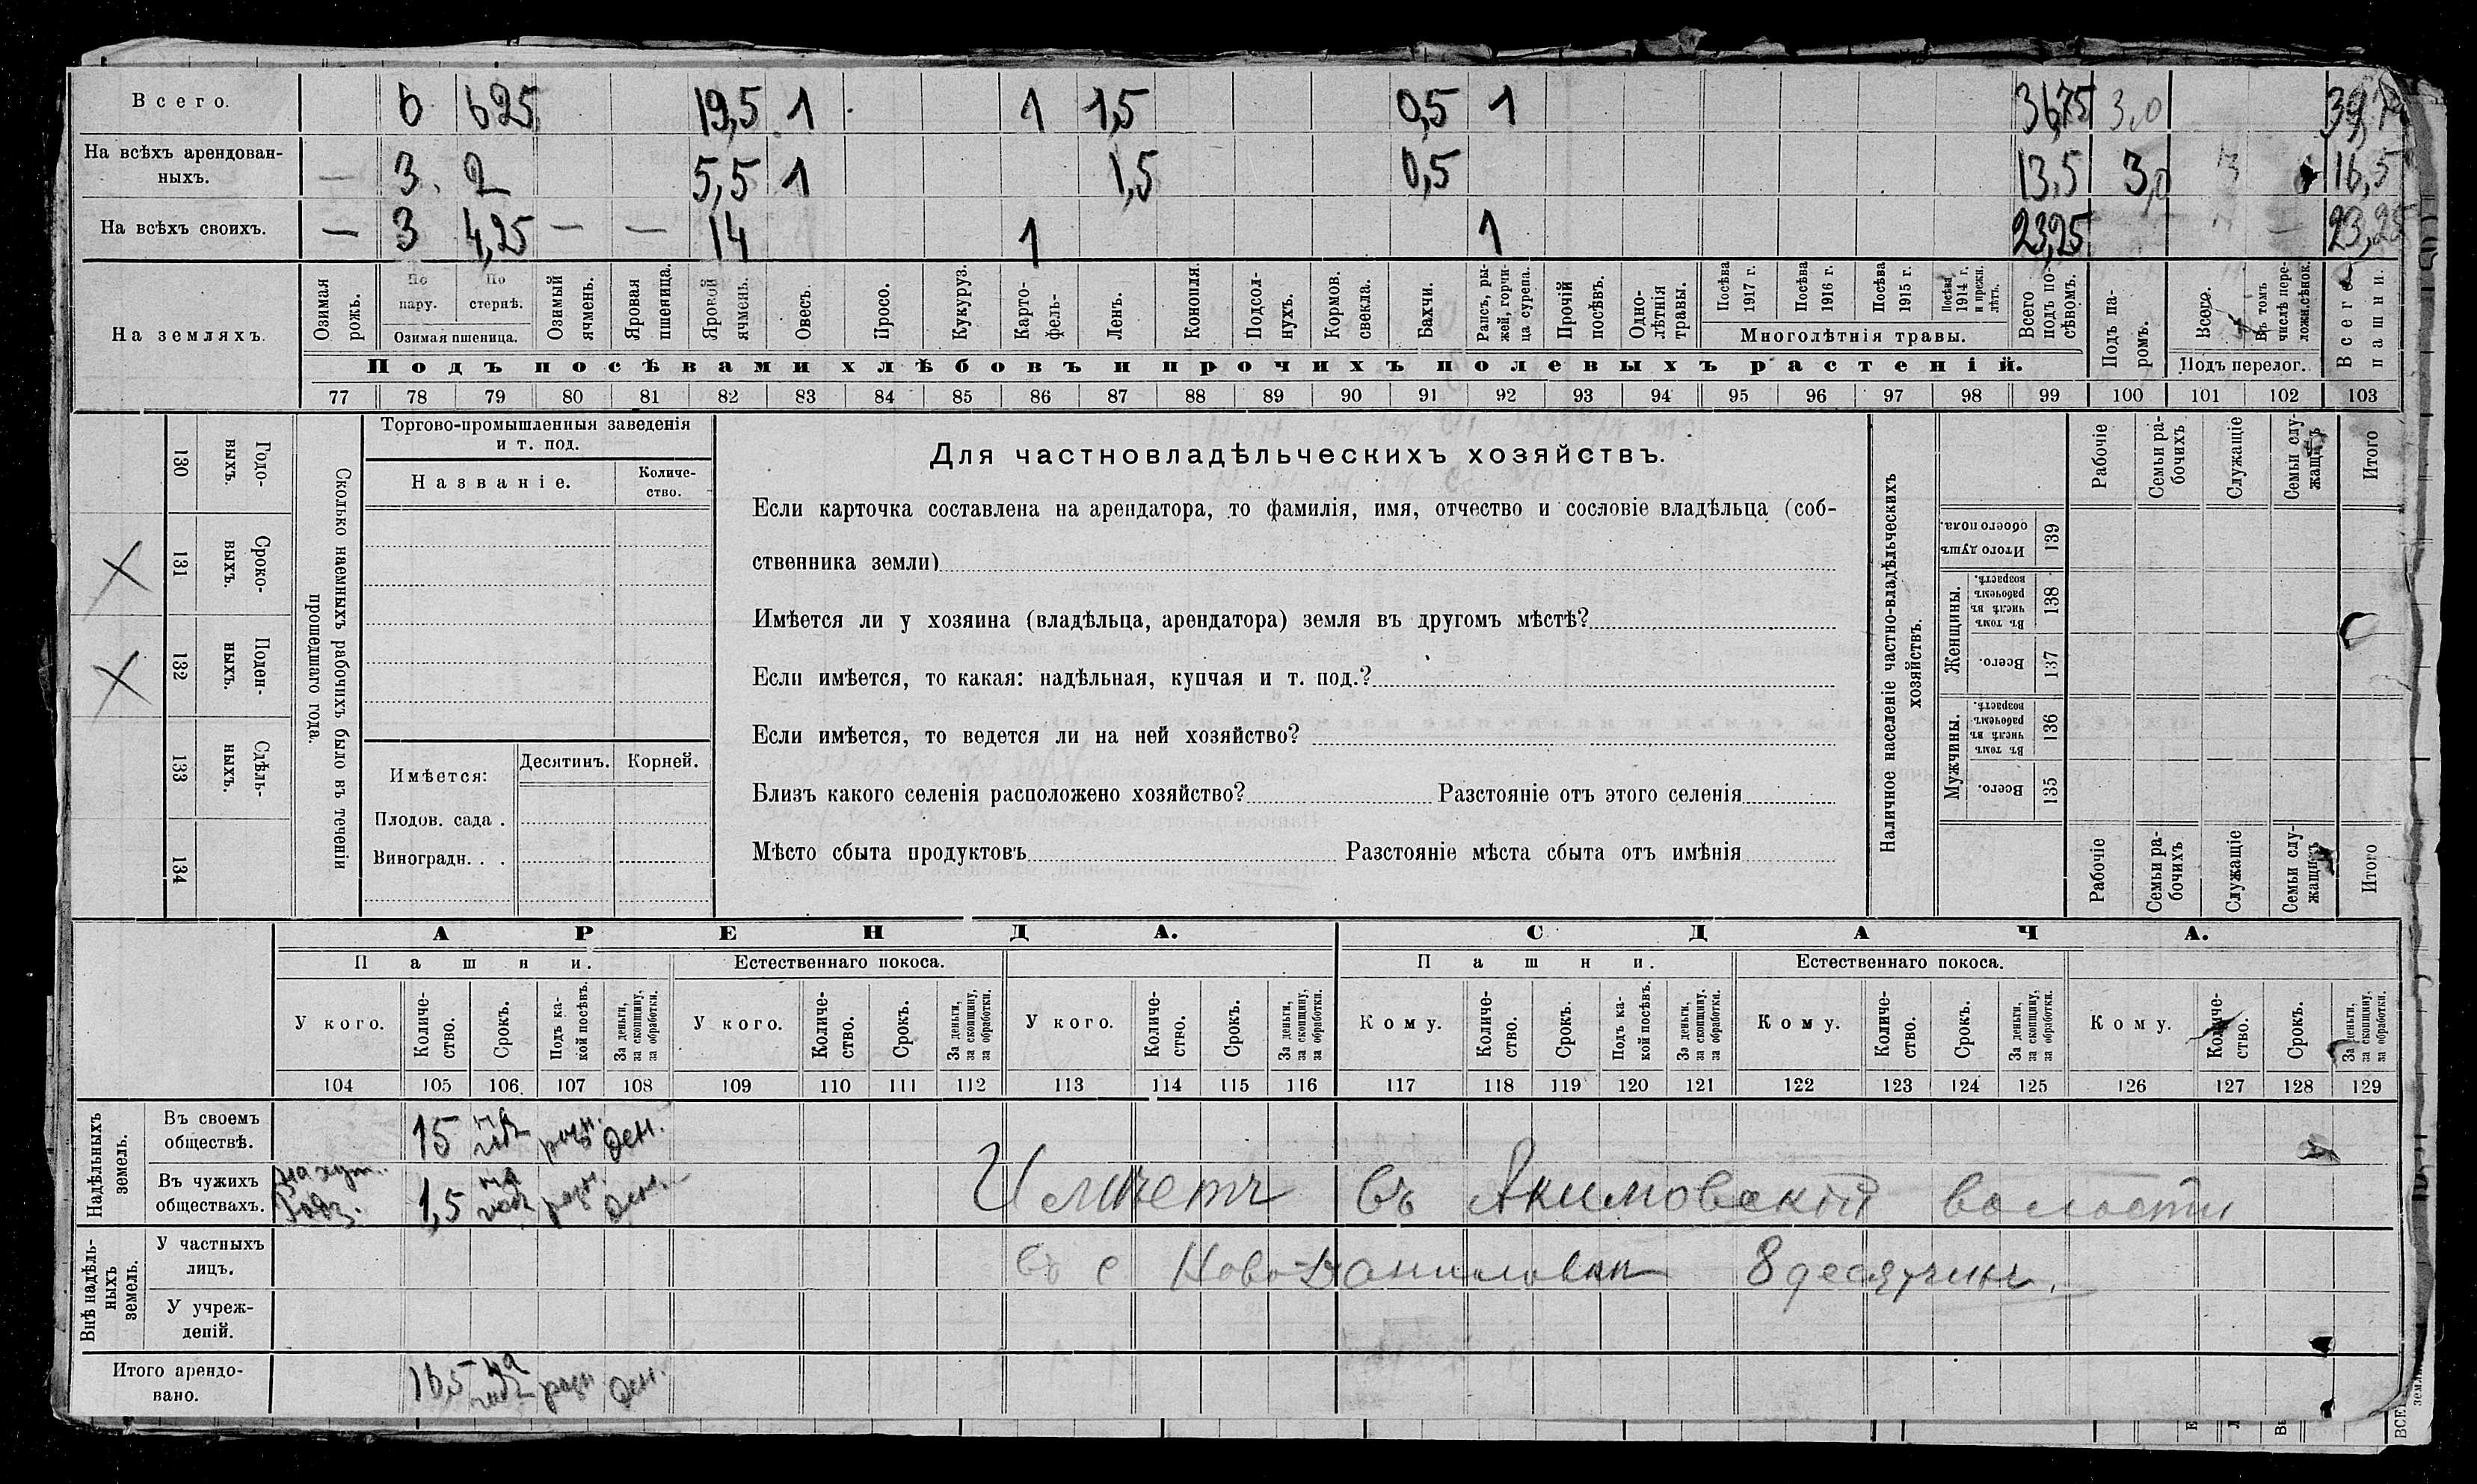 Всего. 6 6 25 19,5 1 1 1,5 0,5 1 36,75 3,0
На всѣхъ арендован-
ныхъ. — 3. 2 5,5 1 1,5 0,5 13,5 3,0 16,5
На всѣхъ своихъ. — 3 4,25 — — 14 1 1 23,25 — 23,25
На земляхъ.
Озимая рожь.
По пару.
По стернѣ.
Озимая пшеница.
Озимый ячмень.
Яровая пшеница.
Яровой ячмень.
Овесъ.
Просо.
Кукуруз.
Карто-
фель-
Ленъ.
Конопля.
Подсол-
нухъ.
Кормов.
свекла.
Бахчи.
Рапсъ, ры-
жей, горчи-
ца сурепа.
Прочій
посѣвъ.
Одно-
лѣтнія
травы.
Посѣва
1917 г.
Посѣва
1916 г.
Посѣва
1915 г.
Посѣва
1914 г.
и прежн.
лѣтъ.
Многолѣтнія травы.
Всего
подъ по-
сѣвомъ.
Подъ па-
ромъ.
Всего.
Въ томъ
числѣ пере-
ложн.сѣнок.
Подъ перелог.
Всего
пашни.
Подъ посѣвами хлѣбовъ и прочихъ полевыхъ растеній.
77 78 79 80 81 82 83 84 85 86 87 88 89 90 91 92 93 94 95 96 97 98 99 100 101 102 103
130 Годо-
выхъ.
131 Сроко-
выхъ.
132 Поден-
ныхъ.
133 Сдѣль-
ныхъ.
134
Сколько наемныхъ рабочихъ было въ теченіи
прошедшаго года.
Торгово-промышленныя заведенія
и т. под.
Названіе.
Количе-
ство.
Имѣется:
Десятинъ. Корней.
Плодов. сада .
Виноградн. . .
Для частновладѣльческихъ хозяйствъ.
Если карточка составлена на арендатора, то фамилія, имя, отчество и сословіе владѣльца (соб-
ственника земли)
Имѣется ли у хозяина (владѣльца, арендатора) земля въ другомъ мѣстѣ?
Если имѣется, то какая: надѣльная, купчая и т. под.?
Если имѣется, то ведется ли на ней хозяйство?
Близъ какого селенія расположено хозяйство? Разстояніе отъ этого селенія
Мѣсто сбыта продуктовъ Разстояніе мѣста сбыта отъ имѣнія
Наличное населеніе частно-владѣльческихъ
хозяйствъ.
Рабочіе
Семьи ра-
бочихъ
Служащіе
Семьи слу-
жащихъ
Итого
Итого душъ
обоего пола.
139
Женщины.
Въ томъ
числѣ въ
рабочемъ
возрастѣ.
138
Всего.
137
Мужчины.
Въ томъ
числѣ въ
рабочемъ
возрастѣ.
136
Всего.
135
Рабочіе
Семьи ра-
бочихъ
Служащіе
Семьи слу-
жащихъ
Итого
АРЕНДА. СДАЧА.
Пашни. Естественнаго покоса. Пашни. Естественнаго покоса.
У кого.
Количе-
ство.
Срокъ.
Подъ ка-
кой посѣвъ.
За деньги,
за скопщину,
за обработки.
У кого.
Количе-
ство.
Срокъ.
За деньги,
за скопщину,
за обработки.
У кого.
Количе-
ство.
Срокъ.
За деньги,
за скопщину,
за обработки.
Кому.
Количе-
ство.
Срокъ.
Подъ ка-
кой посѣвъ.
За деньги,
за скопщину,
за обработки.
Кому.
Количе-
ство.
Срокъ.
За деньги,
за скопщину,
за обработки.
Кому.
Количе-
ство.
Срокъ.
За деньги,
за скопщину,
за обработки.
104 105 106 107 108 109 110 111 112 113 114 115 116 117 118 119 120 121 122 123 124 125 126 127 128 129
Надѣльныхъ
земель.
Въ своемъ
обществѣ. 15 на ден.
Въ чужихъ
обществахъ. 1,5 на ден.
Имѣетъ въ Акимовской волости
Внѣ надѣль-
ныхъ
земель.
У частныхъ
лицъ.
въ с Ново-Даниловки 8 десятинъ.
У учреж-
деній.
Итого арендо-
вано. 16,5 на ден.